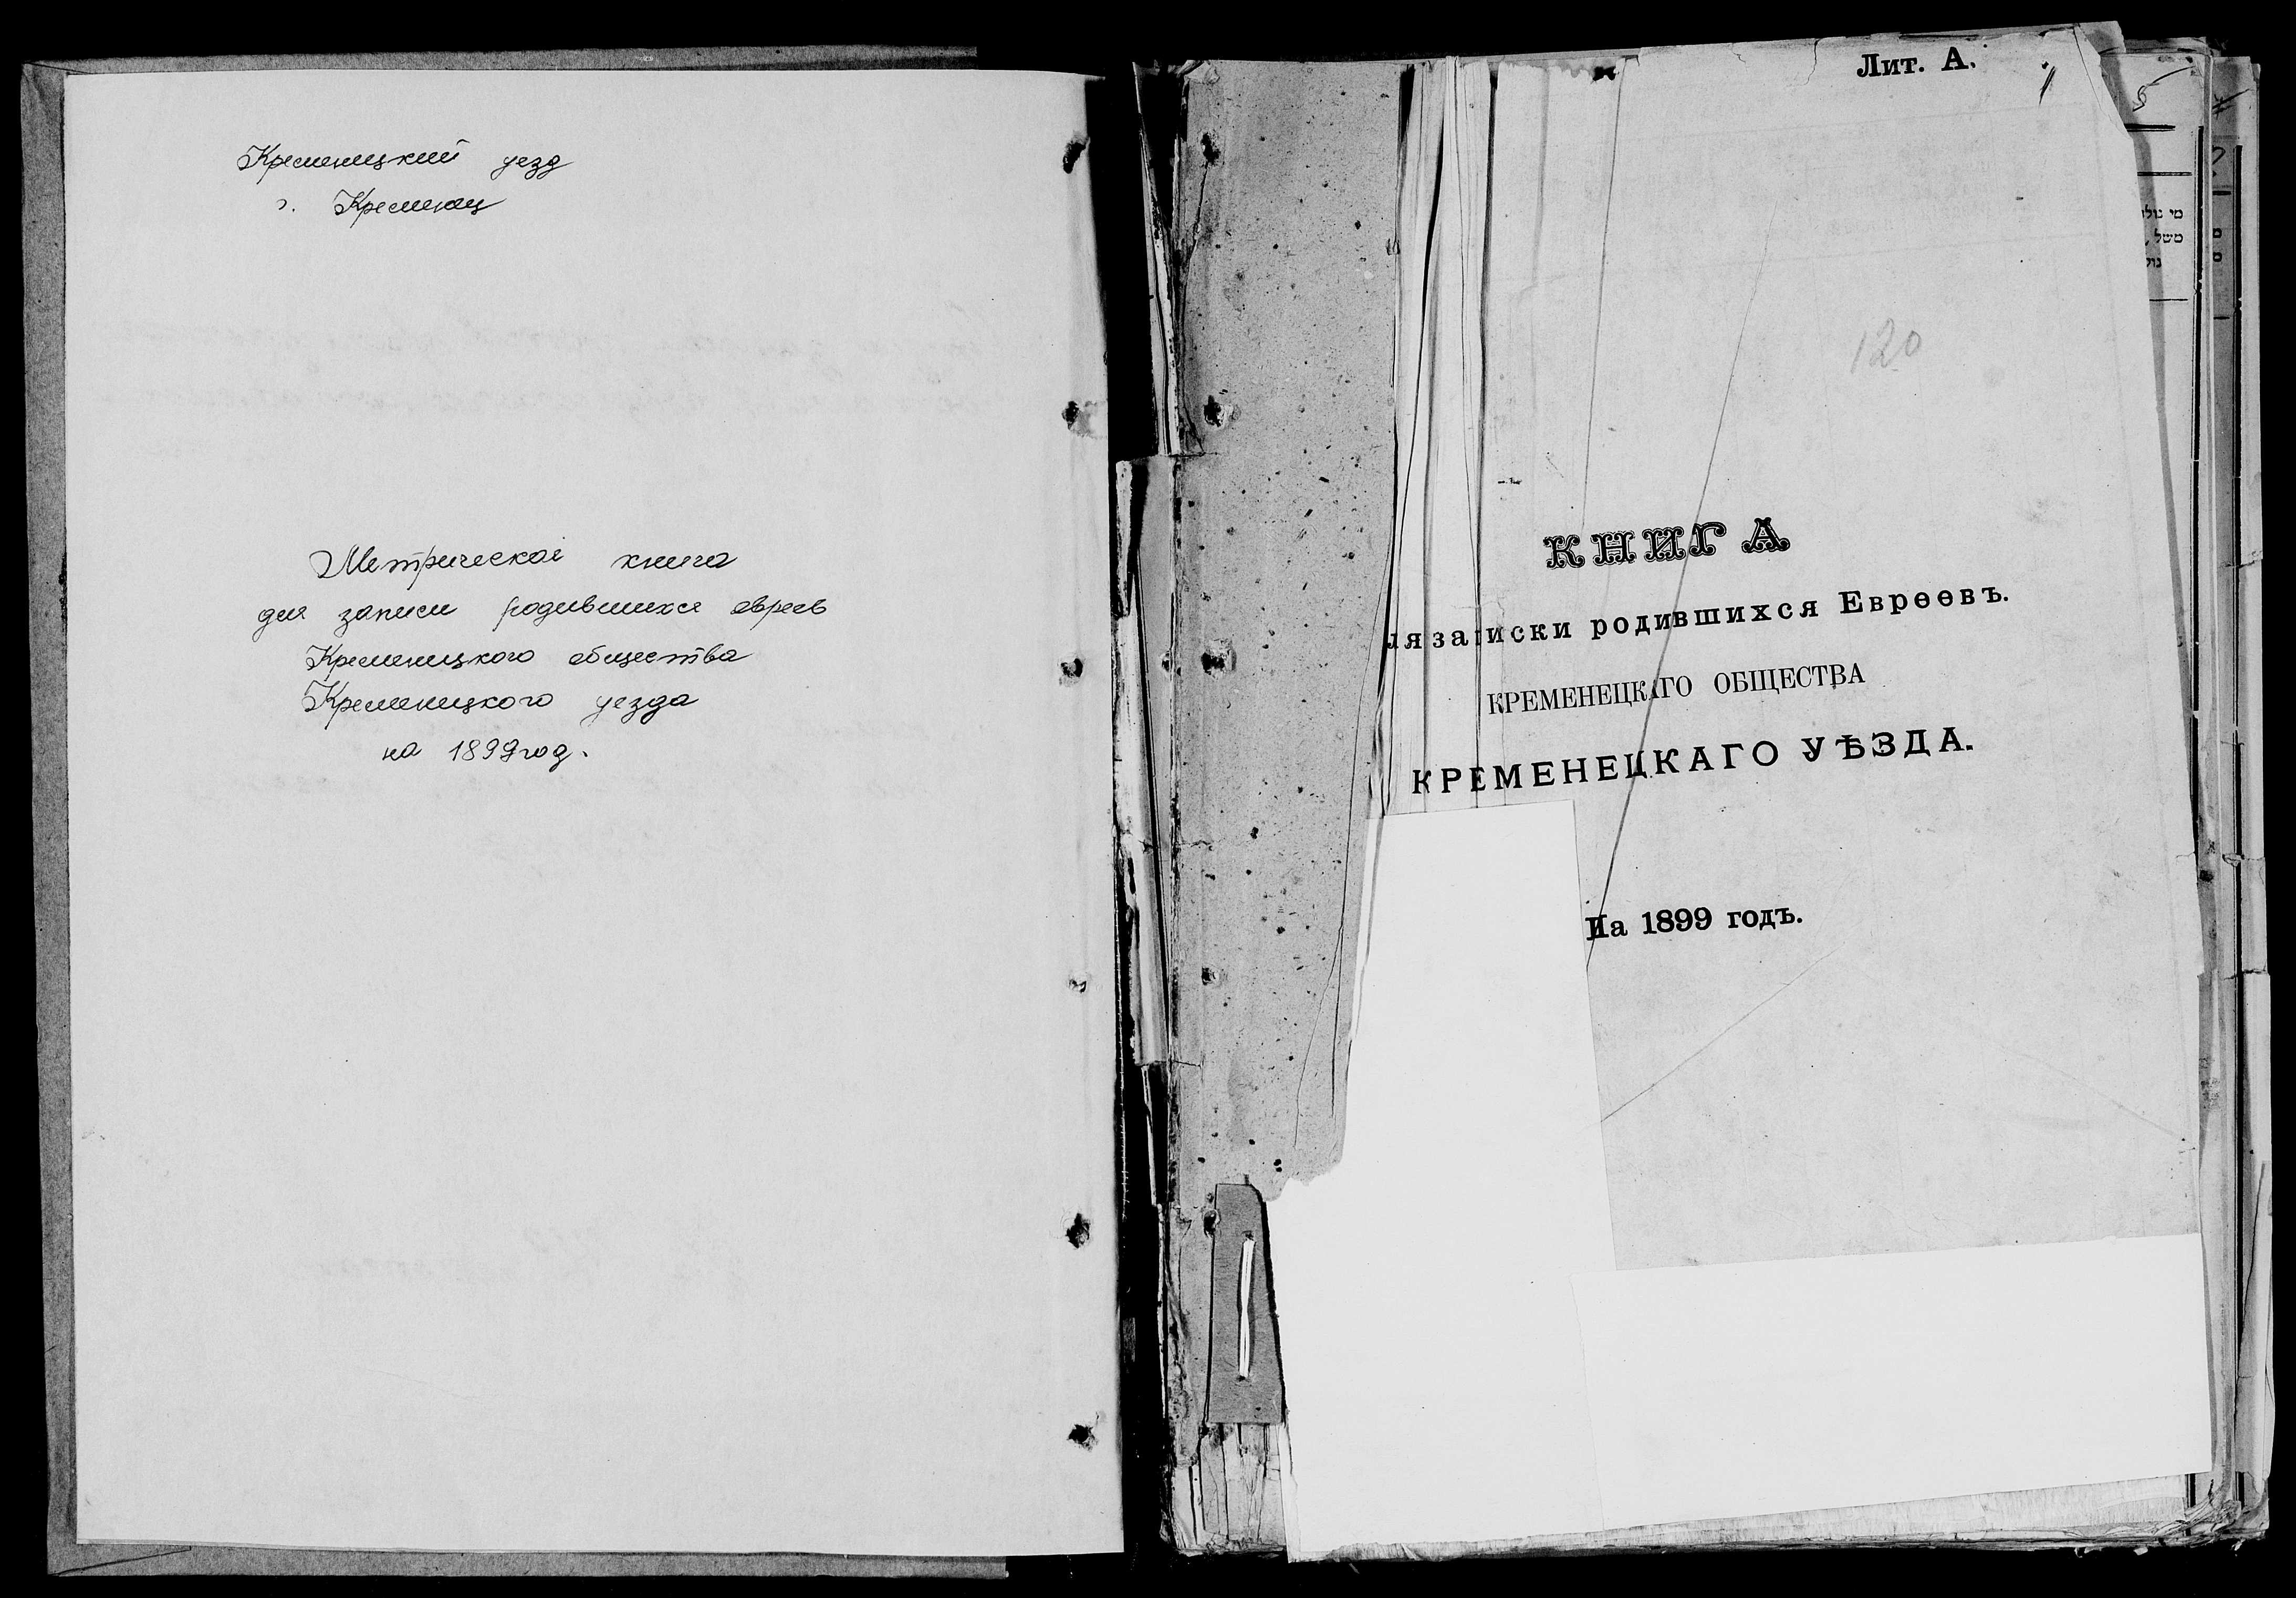 Кременецкий уезд
г. Кременец
Метрическая книга
для записи родившихся евреев
Кременецкого общества
Кременецкого уезда
на 1899 год.
Лит. А.
1
5
120
КНИГА
ля записки родившихся Евреевъ.
КРЕМЕНЕЦКАГО ОБЩЕСТВА
КРЕМЕНЕЦКАГО УѢЗДА.
На 1899 годъ.